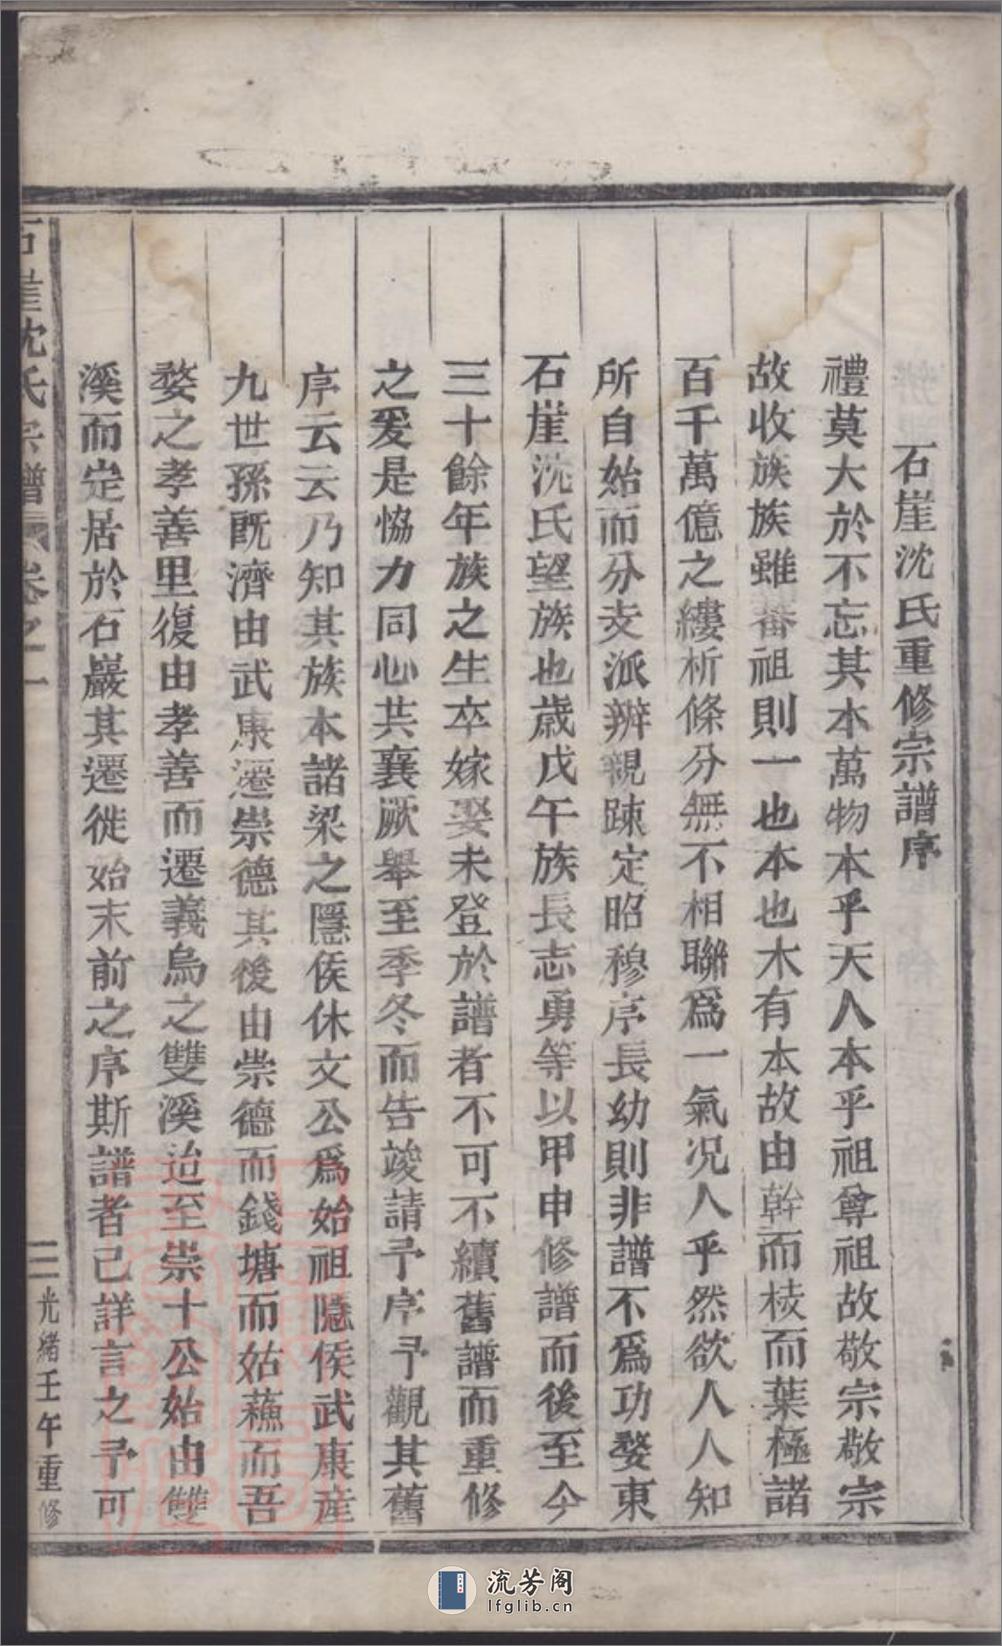 石崖沈氏重修宗譜序
禮莫大於不忘其本萬物本乎天人本乎祖尊祖故敬宗敬宗
故收族族雖蕃祖則一也本也木有本故由幹而枝而葉極諸
百千萬億之縷析條分無不相聯爲一氣况人乎然欲人人知
所自始而分支派辨親踈定昭穆序長幼則非譜不爲功婺東
石崖沈氏望族也歲戊午族長志勇等以甲申修譜而後至今
三十餘年族之生卒嫁娶未登於譜者不可不續舊譜而重修
之爰是恊力同心共襄厥舉至季冬而告竣請予序予觀其舊
序云云乃知其族本諸梁之隱侯休文公爲始祖隱侯武康産
九世孫旣濟由武康遷崇德其後由崇德而錢塘而姑蘓而吾
婺之孝善里復由孝善而遷義烏之雙溪迨至崇十公始由雙
溪而定居於石巖其遷徙始末前之序斯譜者已詳言之予可
石崖沈氏宗譜 卷之一
三 光緒壬午重修
流芳阁
lfglib.cn